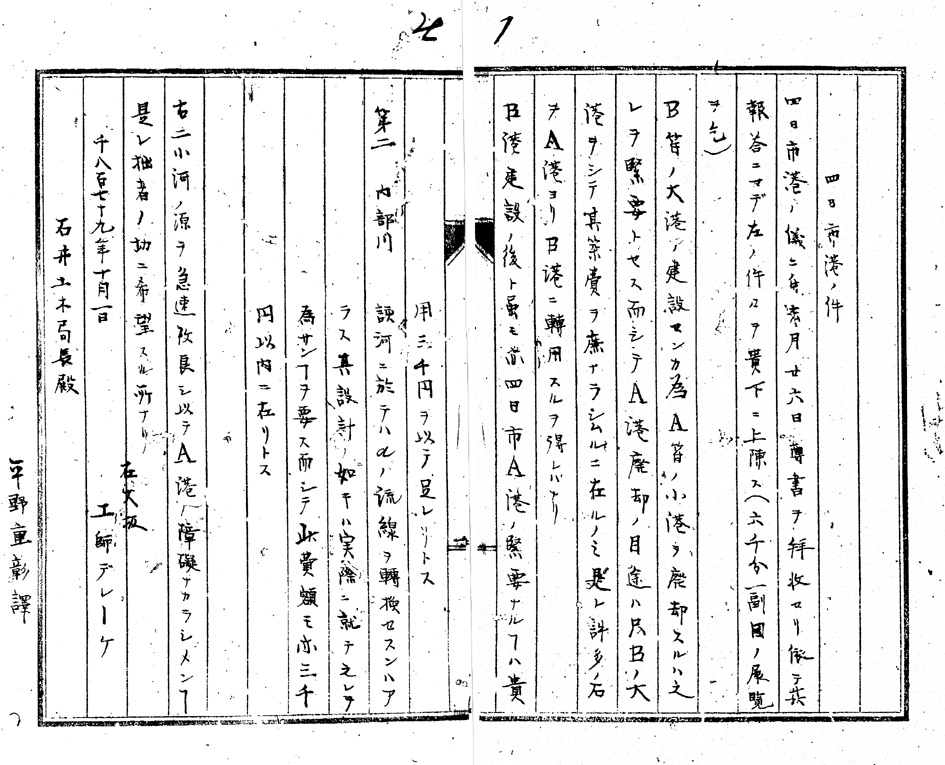 四日市港ノ件
四日市港ノ儀ニ付港月廿六日尊書ヲ拝收セリ依テ茲
報答ニマデ左ノ件々ヲ貴下ニ上陳ス(六千分一副図ノ展覧
ヲ乞)
B筥ノ大港ヲ建設センカ為A筥ノ小港ヲ廃却スルハ之
レヲ緊要トセス而シテA港廃却ノ目途ハ只Bノ大
港ヲシテ其築費ヲ廉ナラシムルニ在ルノミ是レ許多ノ石
ヲA港ヨリB港ニ轉用スルヲ得レバナリ
B港建設ノ後ト虽モ亦四日市A港ノ緊要ナルヿハ貴
用三千円ヲ以テ足レリトス
第二 内部川 該河ニ於テハdノ流線ヲ轉換セスンハア
ラス其設計ノ如キハ実際ニ就テ之レヲ
為サンヿヲ要ス而シテ此費額モ亦三千
円以内ニ在リトス
右二小河ノ源ヲ急速改良シ以テA港ノ障礙ナカラシメンヿ
是レ拙者ノ切ニ希望スル所ナリ
在大坂
千八百七十九年十月一日 工師デレーケ
石井土木局長殿
平野重彰譯